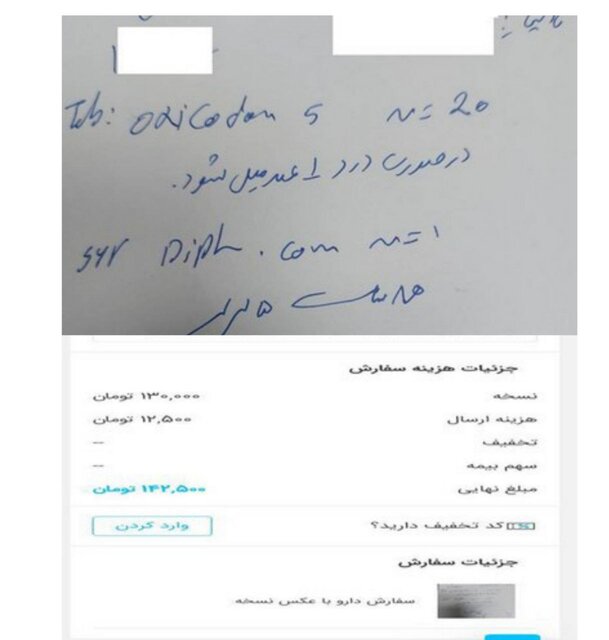 Tab: oxiCodon 5 N= 20
در صورت درد 1 عدد میل شود.
syr Diph. com N=1
جزئیات هزینه سفارش
نسخه ۱۳۰,۰۰۰ تومان
هزینه ارسال ۱۲,۵۰۰ تومان
تخفیف --
سهم بیمه --
مبلغ نهایی ۱۴۲,۵۰۰ تومان
کد تخفیف دارید؟ وارد کردن
جزئیات سفارش
سفارش دارو با عکس نسخه